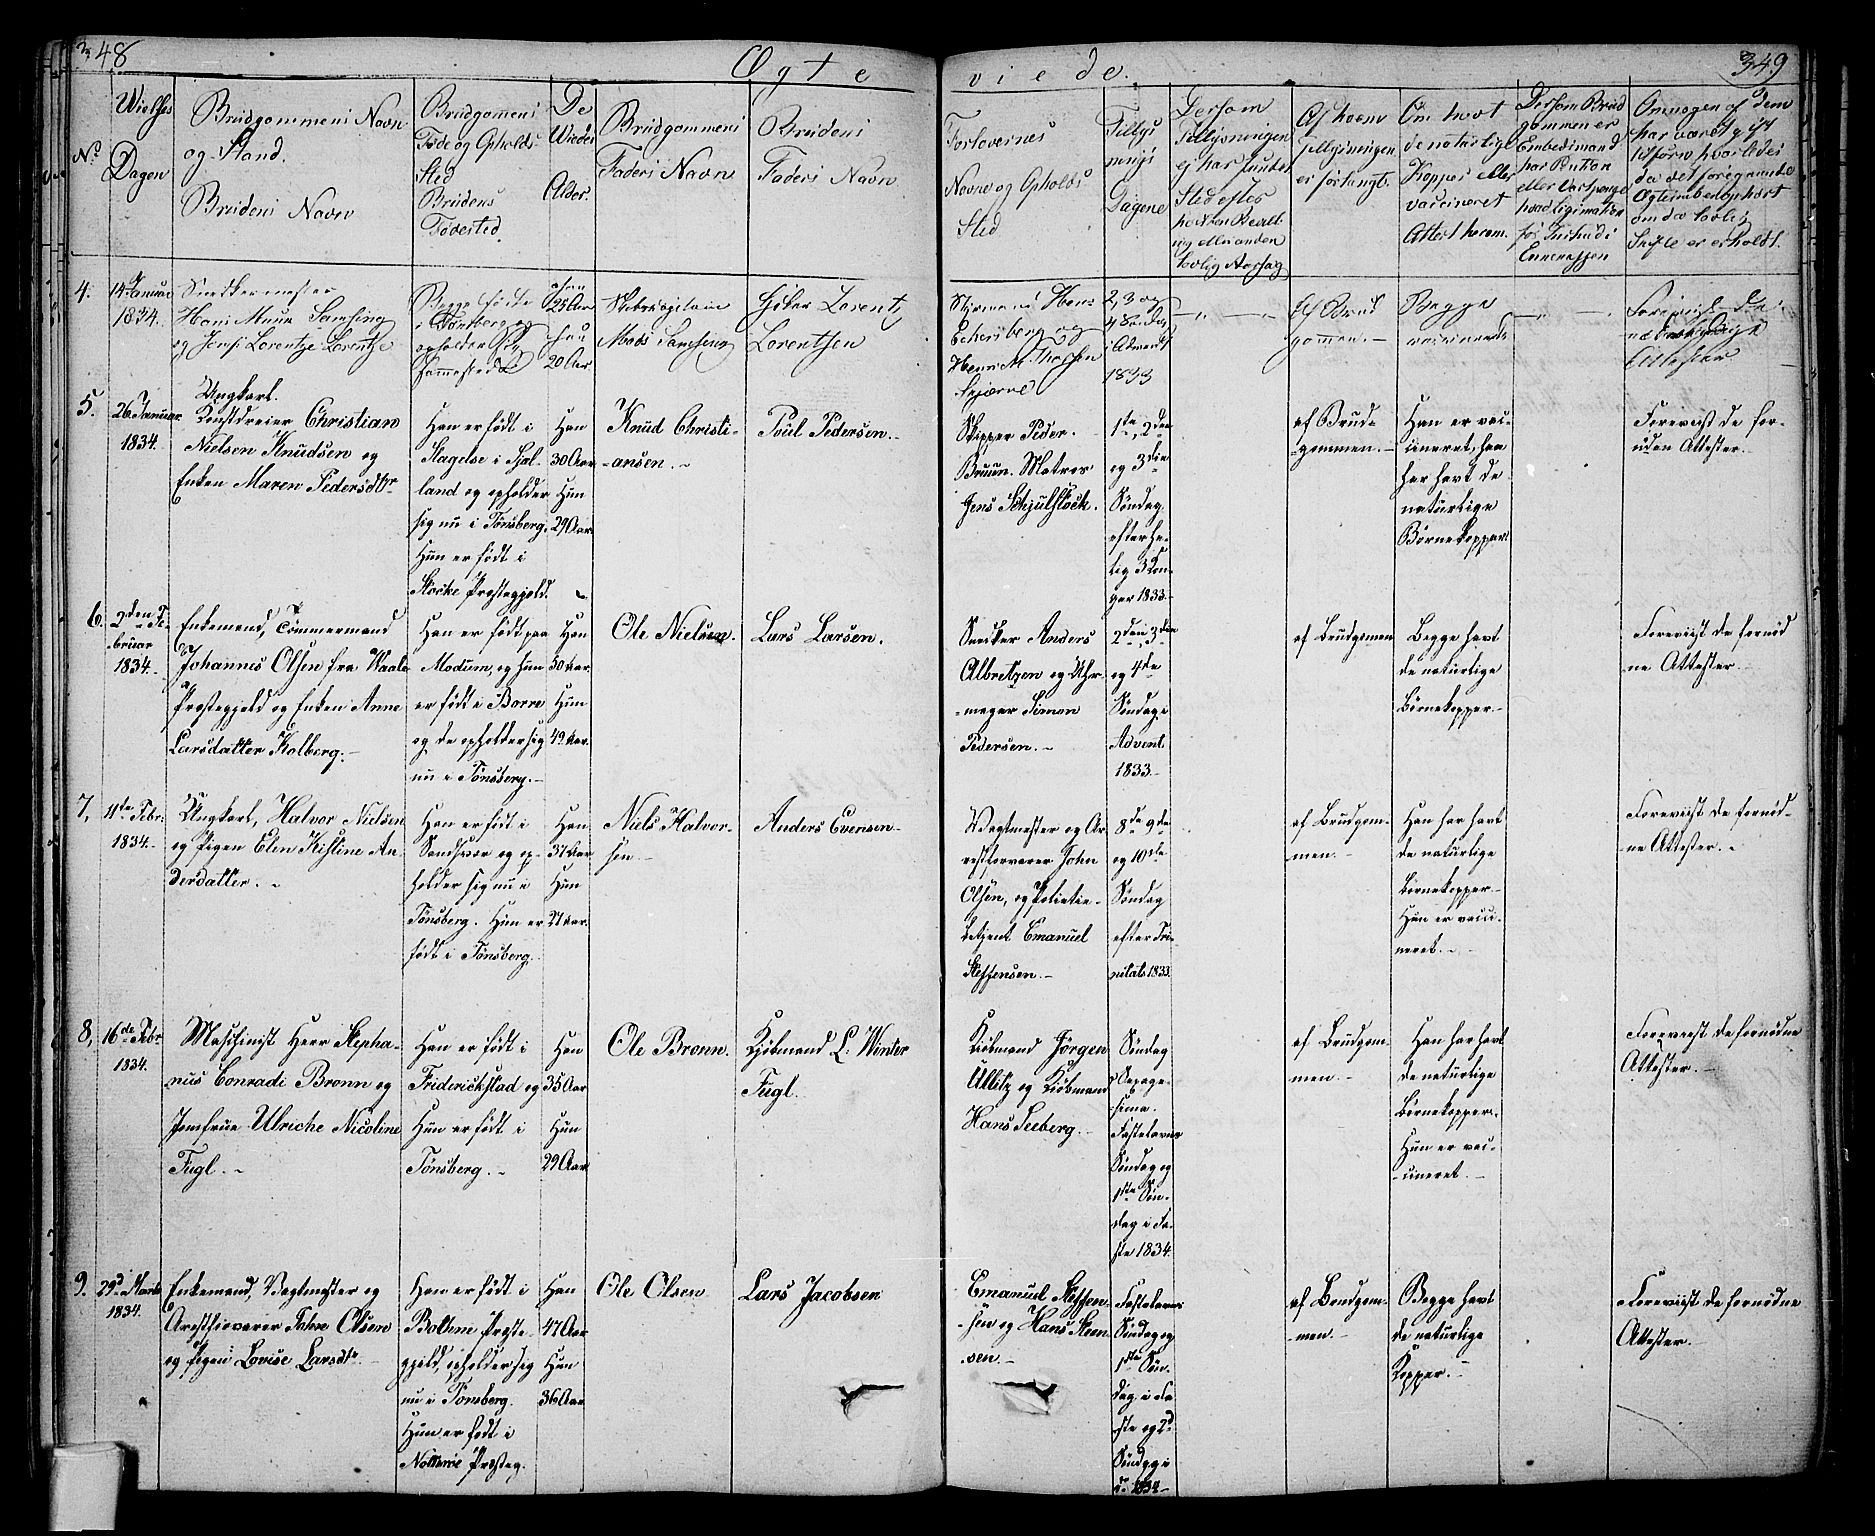 348
Egte
viede.
349
No
Vielses
Dagen
Brudgommens Navn
og Stand.
Brudens Navn
Brudgommens
Føde og Opholds
Sted
Brudens
Fødested.
De
Viedes
Alder.
Brudgommens
Faders Navn
Brudens
Faders Navn
Forlovernes
Navne og Opholds
Sted
Tillys
nings
Dagene
Dersom
Tillysningen
ej har fundet
Sted efter
Af hvem
Tillysningen
er forlangt.
Om havt
de naturlige
Kopper eller
vaccineret
Attest herom.
Dersom Brud
gommen er
Embedsmand
Om nogen af dem
har været gift
tilforn, hvorledes
da det foregaaende
Ægteskab er ophørt
om da lovlig
Skifte er erholdt.
4.
14 Januar
1834.
Snedkermester
Hans Samsing
og Jomf. Lorentze Lorentze
Begge fødte
i Tønsberg og
opholder sig
sammesteds
25 Aar
hun
20 Aar
Mads Samsing
Lorentz
Lorentsen
og
2, 3 og
4 Søndag
i Advent
1833
— " —
Af Brud
gommen. —
Begge
vaccinerede
— " —
Foreviist de
nødvendige
Attester
5.
26 Januar
1834.
Ungkarl.
Kunstdreier Christian
Nielsen Knudsen og
Enken Maren Pedersdtr
Han er født i
Slagelse i Sjæl-
land og opholder
sig nu i Tønsberg.
Hun er født i
Stocke Præstegjeld.
Han
30 Aar
Hun
29 Aar.
Knud Christi-
-ansen. -
Poul Pedersen. -
Skipper Peder
Bruun. Matros
Jens Schjulstock.
1ste, 2den
og 3die
Søndag
efter hel-
lig 3 Kon-
ger 1833.
af Brud-
-gommen. -
Han er vac-
cineret, hun
har havt de
naturlige
Børnekopper.
Foreviist de for-
uden Attester. -
6.
2den Fe-
bruar
1834. -
Enkemand, Tømmermand
Johannes Olsen fra Waale
Præstegjeld og Enken Anne
Larsdatter Kolberg. -
Han er født paa
Modum, og hun
er født i Borre
og de opholder sig
nu i Tønsberg. -
Han
50 Aar
Hun
49 Aar.
Ole Nielsen.
Lars Larsen.
Snedker Anders
Albretzen og Uhr-
-mager Simon
Pedersen. -
2den, 3die
og 4de
Søndag i
Advent
1833. -
af Brudgommen
Begge havt
de naturlige
Børnekopper. -
Foreviist de fornød
ne Attester. -
7,
11te Febr.
1834. -
Ungkarl, Halvor Nielsen
og Pigen Elen Kistine An-
dersdatter. -
Han er født i
Sandsvær og op-
holder sig nu i
Tønsberg. Hun er
født i Tønsberg.
Han
37 Aar
Hun
21 Aar.
Niels Halvor-
sen -
Anders Evensen -
Vagtmester og Ar-
restforvarer John
Olsen, og Politie-
betjent Emanuel
Steffensen. -
8de, 9de
og 10ste
Søndag
efter Tri-
nitatis 1833.
af Brudgom-
men. -
Han har havt
de naturlige
Børnekopper. -
Hun er vacci-
neret. -
Foreviist de fornød-
ne Attester. -
8,
16de Febr
1834.
Maschinist Herr Stepha-
nus Conradi Bronn og
Jomfrue Ulriche Nicoline
Fugl. -
Han er født i
Friderickstad og
Hun er født i
Tønsberg. -
Han
35 Aar
Hun
29 Aar
Ole Bronn.
Kjøbmand L. Winter
Fugl.
Kiøbmand Jörgen
Ullitz og Kiøbmand
Hans Seeberg. -
Søndag
Sexage-
-sima.
Fastelavns
Søndag og
1ste Søn-
dag i Fa-
ste 1834.
af Brudgom-
men. -
Han har havt
de naturlige
Børnekopper.
Hun er vac-
-cineret. -
Foreviist de fornødne
Attester. -
9.
29d Marts
1834.
Enkemand, Vagtmester og
Arrestforvarer John Olsen
og Pigen Lovise Larsdtr. -
Han er født i
Bottene Præste-
gjeld, opholder sig
nu i Tønsberg.
Hun er født i
Nötteröe Præsteg.
Han
47 Aar
Hun
36 Aar
Ole Olsen
Lars Jacobsen
Emanuel Steffen-
sen og Hans Steen-
sen. -
Fastelavns
Søndag og
1ste Søn-
dag i Fa-
ste og 2d
Søndag i
do 1834 -
af Brudgom-
men. -
Begge havt
de naturlige
Kopper. -
Foreviist de fornødne
Attester. -